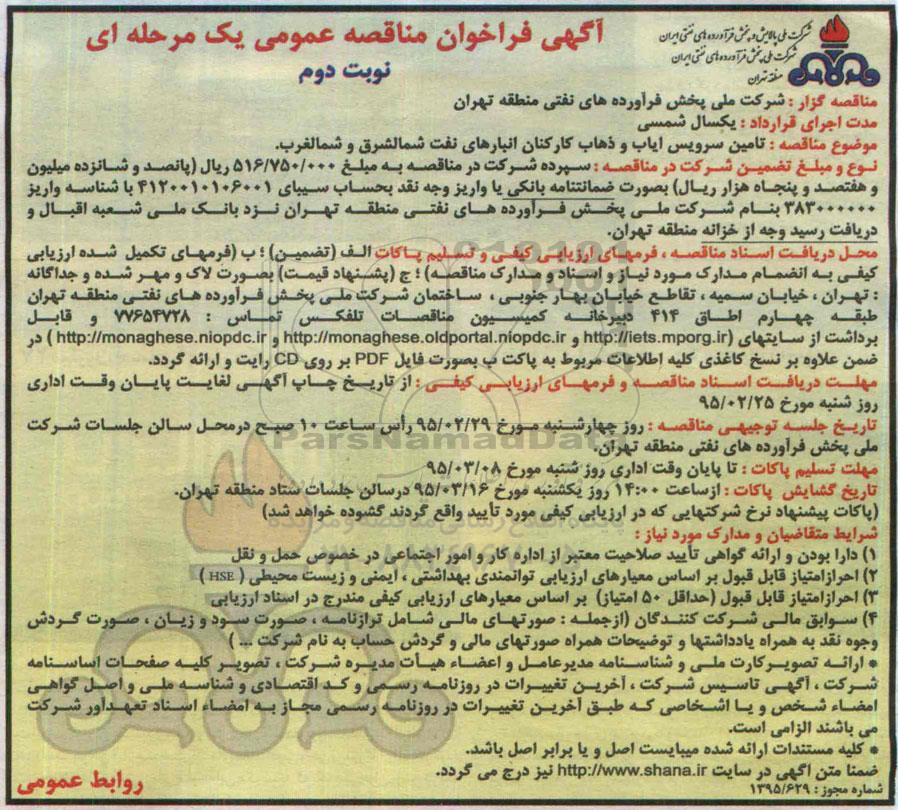 شرکت ملی پالایش و پخش فرآورده های نفتی ایران
شرکت ملی پخش فرآورده های نفتی ایران
منطقه تهران
آگهی فراخوان مناقصه عمومی یک مرحله ای
نوبت دوم
مناقصه گزار : شرکت ملی پخش فرآورده های نفتی منطقه تهران
مدت اجرای قرارداد : یکسال شمسی
موضوع مناقصه : تامین سرویس ایاب و ذهاب کارکنان انبارهای نفت شمالشرق و شمالغرب.
نوع و مبلغ تضمین شرکت در مناقصه : سپرده شرکت در مناقصه به مبلغ ۵۱۶/۷۵۰/۰۰۰ ریال (پانصد و شانزده میلیون
و هفتصد و پنجاه هزار ریال) بصورت ضمانتنامه بانکی یا واریز وجه نقد بحساب سیبای ۴۱۲۰۰۱۰۱۰۶۰۰۱ با شناسه واریز
۳۸۳۰۰۰۰۰۰ بنام شرکت ملی پخش فرآورده های نفتی منطقه تهران نزد بانک ملی شعبه اقبال و
دریافت رسید وجه از خزانه منطقه تهران.
محل دریافت اسناد مناقصه ، فرمهای ارزیابی کیفی و تسلیم پاکات الف (تضمین) ؛ ب (فرمهای تکمیل شده ارزیابی
کیفی به انضمام مدارک مورد نیاز و اسناد و مدارک مناقصه) ؛ ج (پیشنهاد قیمت) بصورت لاک و مهر شده و جداگانه
: تهران ، خیابان سمیه ، تقاطع خیابان بهار جنوبی ، ساختمان شرکت ملی پخش فرآورده های نفتی منطقه تهران
طبقه چهارم اطاق ۴۱۴ دبیرخانه کمیسیون مناقصات تلفکس تماس : ۷۷۶۵۴۷۲۸ و قابل
برداشت از سایتهای (http://iets.mporg.ir و http://monaghese.oldportal.niopdc.ir و http://monaghese.niopdc.ir ) در
ضمن علاوه بر نسخ کاغذی کلیه اطلاعات مربوط به پاکت ب بصورت فایل PDF بر روی CD رایت و ارائه گردد.
مهلت دریافت اسناد مناقصه و فرمهای ارزیابی کیفی : از تاریخ چاپ آگهی لغایت پایان وقت اداری
روز شنبه مورخ ۹۵/۰۲/۲۵
تاریخ جلسه توجیهی مناقصه : روز چهارشنبه مورخ ۹۵/۰۲/۲۹ رأس ساعت ۱۰ صبح درمحل سالن جلسات شرکت
ملی پخش فرآورده های نفتی منطقه تهران.
مهلت تسلیم پاکات : تا پایان وقت اداری روز شنبه مورخ ۹۵/۰۳/۰۸
تاریخ گشایش پاکات : ازساعت ۱۴:۰۰ روز یکشنبه مورخ ۹۵/۰۳/۱۶ درسالن جلسات ستاد منطقه تهران.
(پاکات پیشنهاد نرخ شرکتهایی که در ارزیابی کیفی مورد تأیید واقع گردند گشوده خواهد شد)
شرایط متقاضیان و مدارک مورد نیاز :
۱) دارا بودن و ارائه گواهی تأیید صلاحیت معتبر از اداره کار و امور اجتماعی در خصوص حمل و نقل
۲) احرازامتیاز قابل قبول بر اساس معیارهای ارزیابی توانمندی بهداشتی ، ایمنی و زیست محیطی ( HSE )
۳) احرازامتیاز قابل قبول (حداقل ۵۰ امتیاز) بر اساس معیارهای ارزیابی کیفی مندرج در اسناد ارزیابی
۴) سوابق مالی شرکت کنندگان (ازجمله : صورتهای مالی شامل ترازنامه ، صورت سود و زیان ، صورت گردش
وجوه نقد به همراه یادداشتها و توضیحات همراه صورتهای مالی و گردش حساب به نام شرکت ... )
* ارائه تصویرکارت ملی و شناسنامه مدیرعامل و اعضاء هیأت مدیره شرکت ، تصویر کلیه صفحات اساسنامه
شرکت ، آگهی تاسیس شرکت ، آخرین تغییرات در روزنامه رسمی و کد اقتصادی و شناسه ملی و اصل گواهی
امضاء شخص و یا اشخاصی که طبق آخرین تغییرات در روزنامه رسمی مجاز به امضاء اسناد تعهدآور شرکت
می باشند الزامی است.
* کلیه مستندات ارائه شده میبایست اصل و یا برابر اصل باشد.
ضمنا متن اگهی در سایت http://www.shana.ir نیز درج می گردد.
شماره مجوز : ۱۳۹۵/۶۲۹
روابط عمومی
ParsNamadData